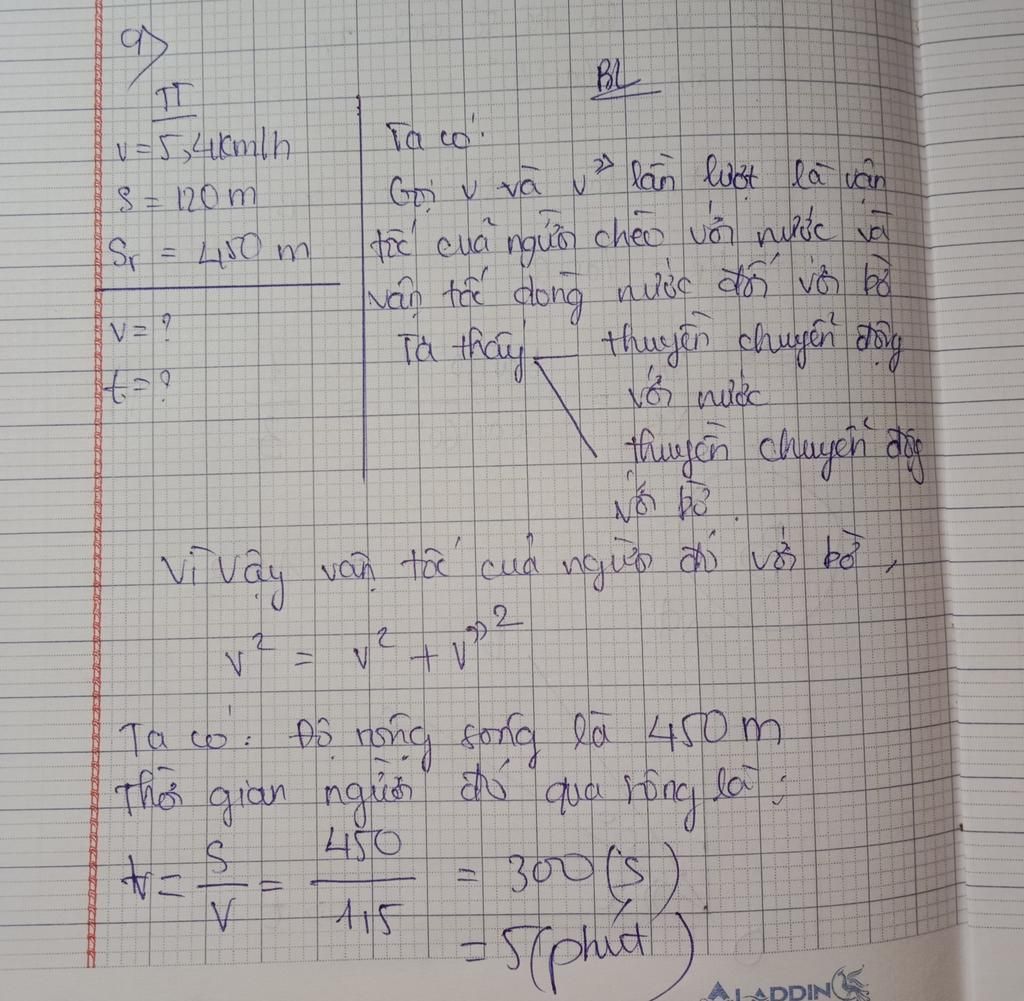 a>
TT
v = 5,4km/h
S = 120 m
Sr = 450 m
v = ?
t = ?
BL
Ta có:
Gọi v và v" lần lượt là vận
tốc cuả người chèo với nước và
vận tốc dòng nước đối với bờ
Ta thấy thuyền chuyển động
với nước
thuyền chuyển động
với bờ.
Vì vậy vận tốc của người đó với bờ,
v² = v² + v"²
Ta có: Độ rộng sông là 450 m
Thời gian người đó qua rông là:
t = S/V = 450/1,5 = 300 (s)
= 5 (phút)
ALADDIN